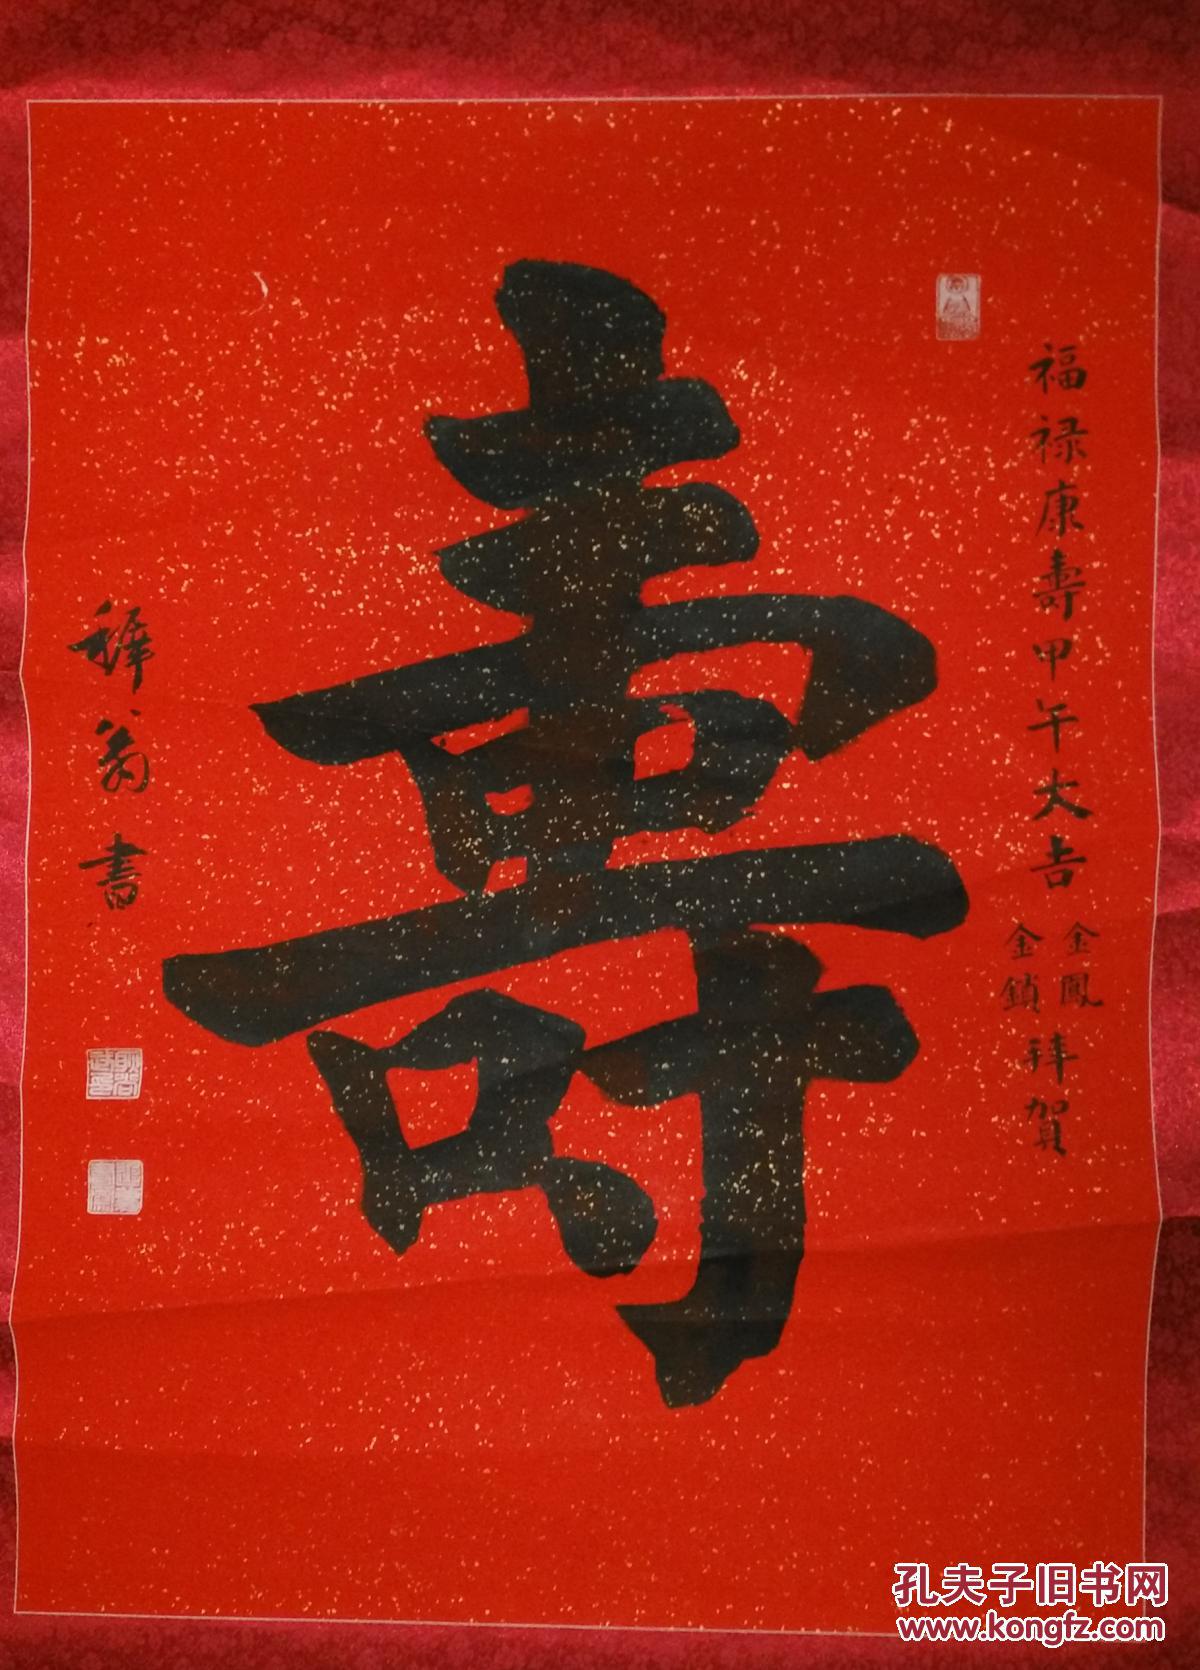 福禄康壽甲午大吉
金鳳
金鎖
拜賀
壽
翁書
孔夫子旧书网
www.kongfz.com